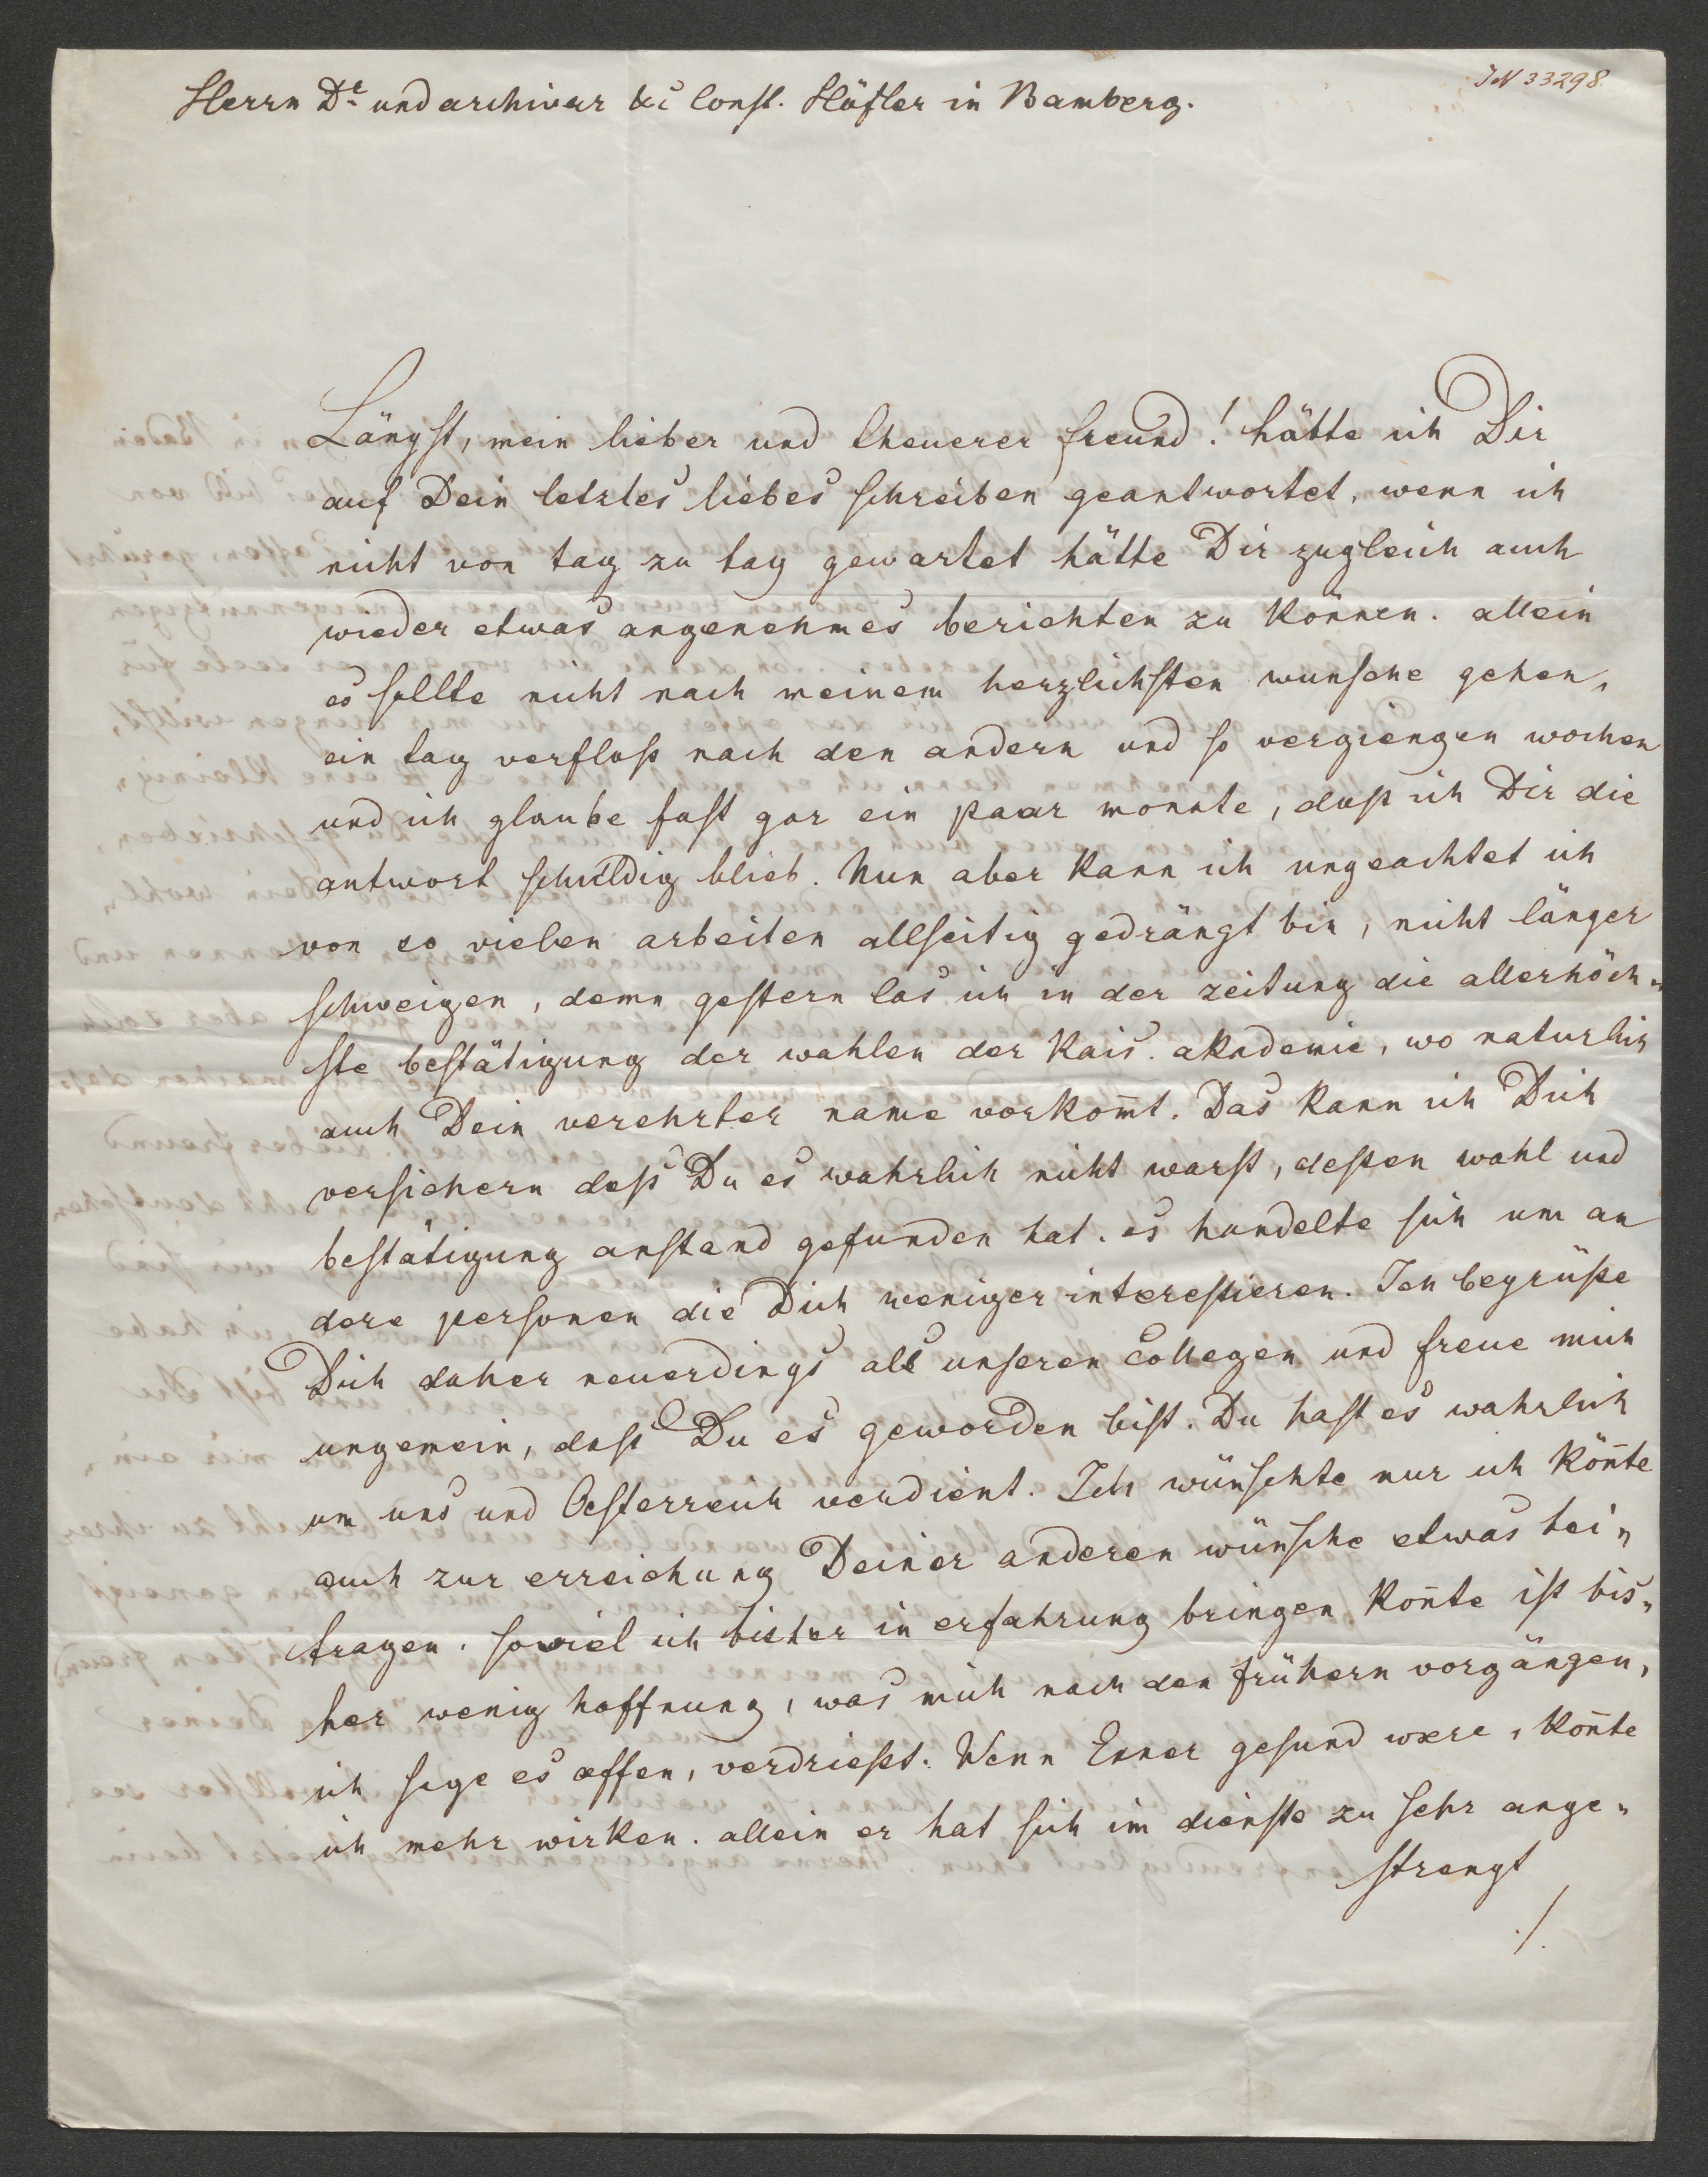 IN 33298
Herrn Dr. und archivar &c Const. Höfler in Bamberg.
Längst, mein lieber und theuerer freund! hätte ich Dir
auf Dein letztes liebes schreiben geantwortet, wenn ich
nicht von tag zu tag gewartet hätte Dir zugleich auch
wieder etwas angenehmes berichten zu können. allein
es sollte nicht nach meinem herzlichsten wunsche gehen,
ein tag verfloß nach den andern und so vergiengen wochen
und ich glaube fast gar ein paar monate, daß ich Dir die
antwort schuldig blieb. Nun aber kann ich ungeachtet ich
von so vielen arbeiten allseitig gedrängt bin, nicht länger
schweigen, denn gestern las ich in der zeitung die allerhöch„
ste bestätigung der wahlen der kais. akademie, wo naturlich
auch Dein verehrter name vorkom̄t. Das kann ich Dich
versichern daß Du es wahrlich nicht warst, deßen wahl und
bestätigung anstand gefunden hat. es handelte sich um an
dere personen die Dich weniger intereßieren. Ich begrüße
Dich daher neuerdings als unseren Collegen und freue mich
ungemein, daß Du es geworden bist. Du hast es wahrlich
um uns und Oesterreich verdient. Ich wünschte nur ich kön̄te
auch zur erreichung Deiner anderen wünsche etwas bei„
tragen. soviel ich bisher in erfahrung bringen kon̄te ist bis„
her wenig hoffnung, was mich nach den frühern vorgängen,
ich sage es offen, verdrießt. Wenn Exner gesund wære, kön̄te
ich mehr wirken. allein er hat sich im dienste zu sehr ange„
strengt
./.